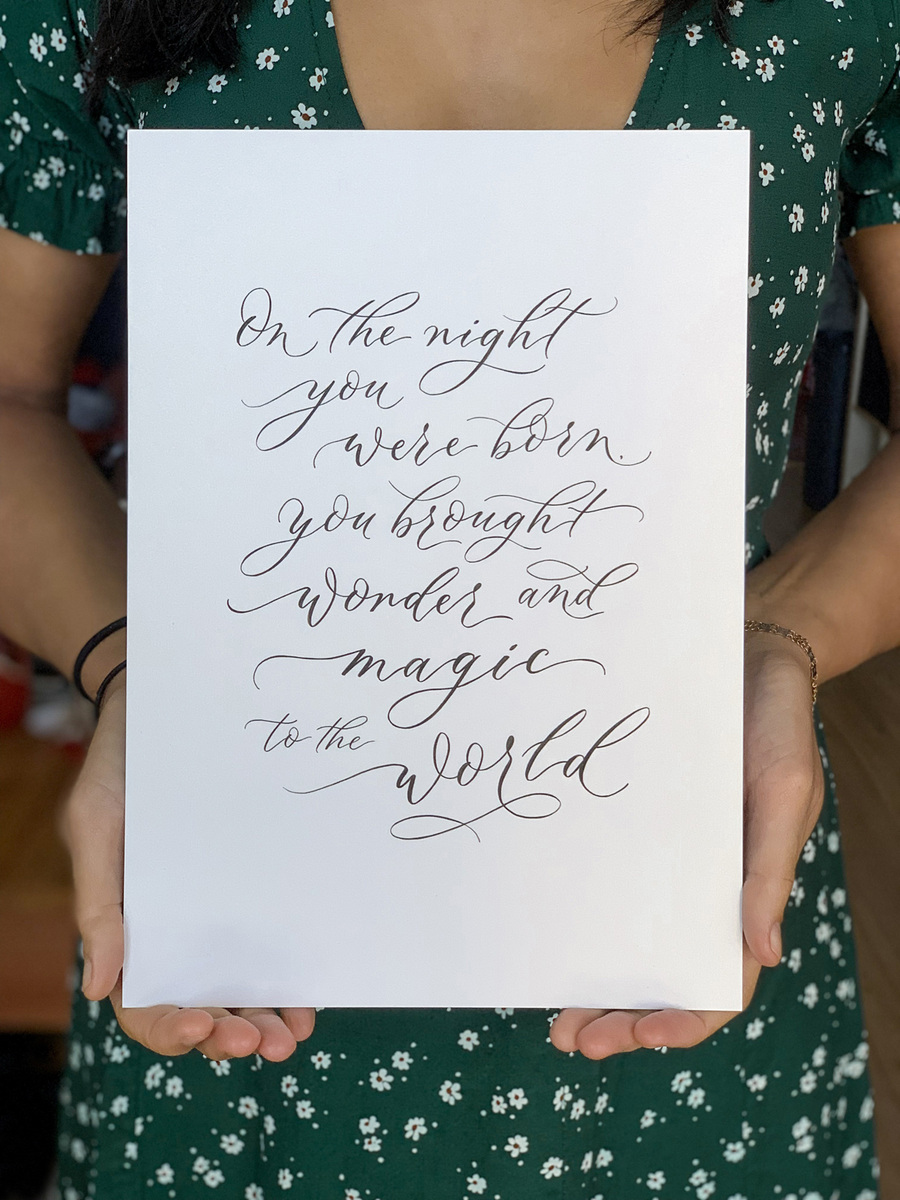 On the night
you
were born.
you brought
wonder and
magic
to the
world